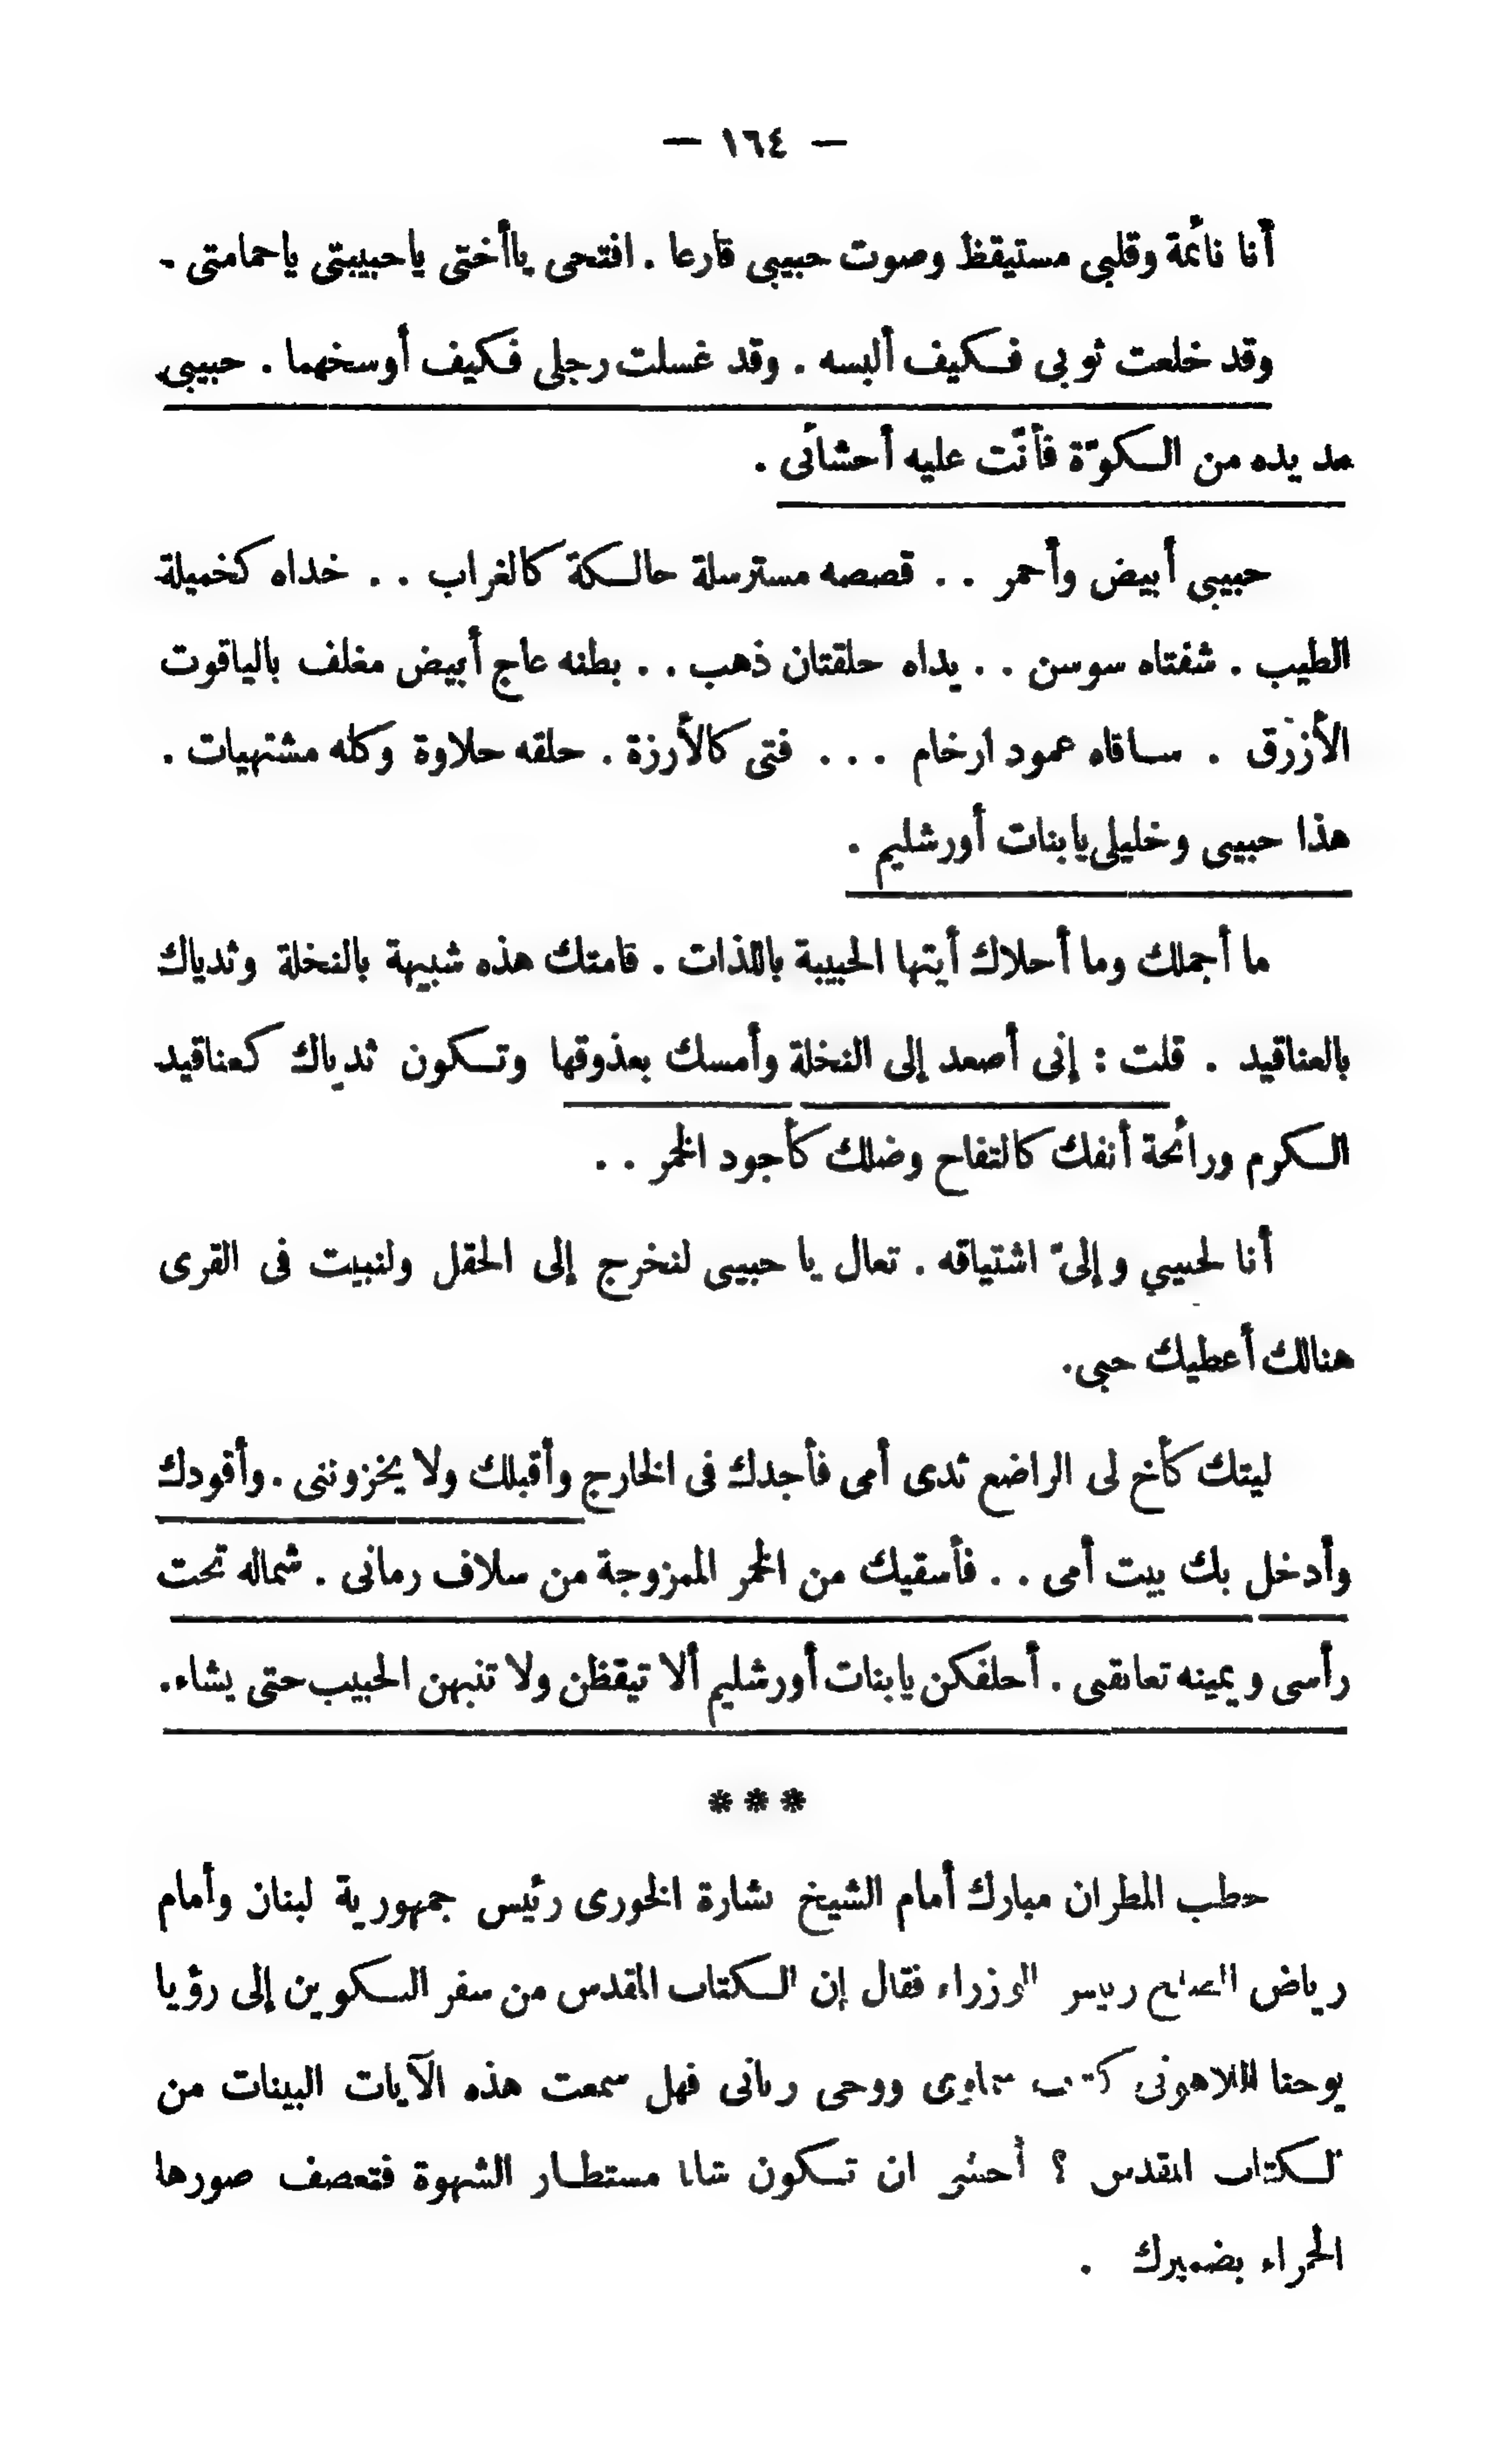 — ١٦٤ —
أنا نائمة وقلبى مستيقظ وصوت حبيبى قارعا . افتحى ياأختى ياحبيبتى ياحمامتى -
وقد خلعت ثوبى فكيف ألبسه . وقد غسلت رجلى فكيف أوسخهما . حبيبى
مد يده من الكوّة فأنّت عليه أحشائى .
حبيبى أبيض وأحمر . . قصصه مسترسلة حالكة كالغراب . . خداه كخميلة
الطيب . شفتاه سوسن . . يداه حلقتان ذهب . . بطنه عاج أبيض مغلف بالياقوت
الأزرق . ساقاه عمود ارخام ... فتى كالأرزة . حلقه حلاوة وكله مشتهيات .
هذا حبيبى وخليلى يابنات أورشليم .
ما أجملك وما أحلاك أيتها الحبيبة باللذات . قامتك هذه شبيهة بالنخلة وثدياك
بالعناقيد . قلت : إنى أصعد إلى النخلة وأمسك بعذوقها وتكون ثدياك كعناقيد
الكرم ورائحة أنفك كالتفاح وضلك كأجود الخمر . .
أنا لحبيبي وإلىّ اشتياقه . تعال يا حبيبى لنخرج إلى الحقل ولنبيت فى القرى
هنالك أعطيك حبى.
ليتك كأخ لى الراضع ثدى أمى فأجدك فى الخارج وأقبلك ولا يخزوننى . وأقودك
وأدخل بك بيت أمى . . فأسقيك من الخمر الممزوجة من سلاف رمانى . شماله تحت
رأسى ويمينه تعانقنى . أحلفكن يابنات أورشليم ألا تيقظن ولا تنبهن الحبيب حتى يشاء.
***
خطب المطران مبارك أمام الشيخ بشارة الخورى رئيس جمهورية لبنان وأمام
رياض الصلح رئيس الوزراء فقال إن الكتاب المقدس من سفر التكوين إلى رؤيا
يوحنا اللاهوتى كتاب سماوى ووحى ربانى فهل سمعت هذه الآيات البينات من
الكتاب المقدس ؟ أخشى ان تكون شابا مستطار الشهوة فتعصف صورها
الحمراء بضميرك .